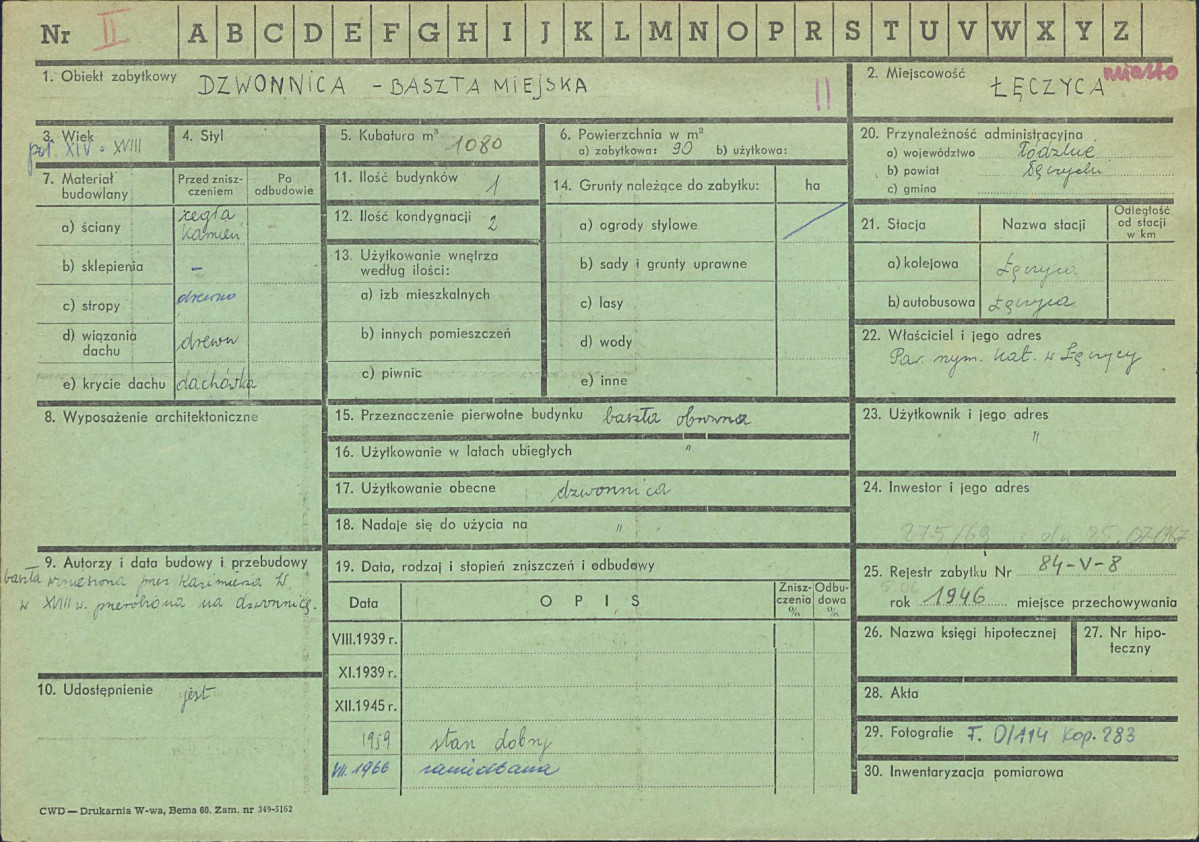 Nr II A B C D E F G H I J K L M N O P R S T U V W X Y Z
1. Obiekt zabytkowy DZWONNICA - BASZTA MIEJSKA II
2. Miejscowość ŁĘCZYCA miasto
3. Wiek poł. XIV - XVIII
4. Styl
5. Kubatura m³ 1080
6. Powierzchnia w m²
a) zabytkowa: 90 b) użytkowa:
7. Materiał budowlany
Przed zniszczeniem
Po odbudowie
a) ściany cegła
kamień
b) sklepienia –
c) stropy drewno
d) wiązania dachu drewn
e) krycie dachu dachówka
8. Wyposażenie architektoniczne
9. Autorzy i data budowy i przebudowy
baszta wzniesiona przez Kazimierza W.
w XVIII w. przerobiona na dzwonnicę.
10. Udostępnienie jest
11. Ilość budynków 1
12. Ilość kondygnacji 2
13. Użytkowanie wnętrza
według ilości:
a) izb mieszkalnych
b) innych pomieszczeń
c) piwnic
14. Grunty należące do zabytku: ha
a) ogrody stylowe
b) sady i grunty uprawne
c) lasy
d) wody
e) inne
15. Przeznaczenie pierwotne budynku baszta obronna
16. Użytkowanie w latach ubiegłych "
17. Użytkowanie obecne dzwonnica
18. Nadaje się do użycia na "
19. Data, rodzaj i stopień zniszczeń i odbudowy
Data OPIS Zniszczenia % Odbudowa %
VIII.1939 r.
XI.1939 r.
XII.1945 r.
1959 stan dobry
VII.1966 zaniedbana
20. Przynależność administracyjna
a) województwo Łódzkie
b) powiat Łęczycki
c) gmina
21. Stacja Nazwa stacji Odległość od stacji w km
a) kolejowa Łęczyca
b) autobusowa Łęczyca
22. Właściciel i jego adres
Par. rzym. kat. w Łęczycy
23. Użytkownik i jego adres
"
24. Inwestor i jego adres
275/69 z dn 25.07.067
25. Rejestr zabytku Nr 84-V-8
rok 1946 miejsce przechowywania
26. Nazwa księgi hipotecznej
27. Nr hipoteczny
28. Akta
29. Fotografie F. 0/114 Kop. 283
30. Inwentaryzacja pomiarowa
CWD — Drukarnia W-wa, Bema 60. Zam. nr 349-5162